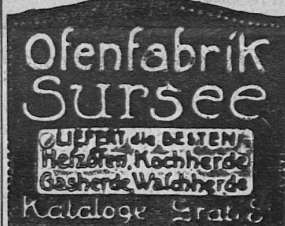 Ofenfabrik
Sursee
LIEFERT die BESTEN
Heizöfen, Kochherde
Gasherde, Waschherde
Kataloge Gratis